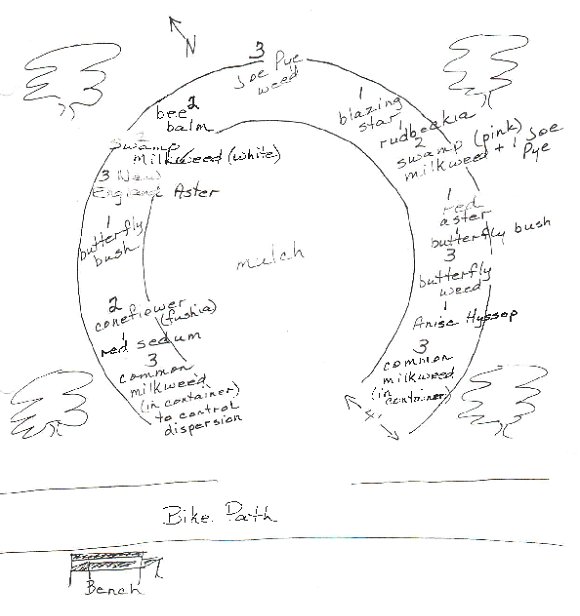 N
3
Joe Pye
weed
bee 2
balm
2
Swamp
milkweed (white)
3 New
England Aster
1
butterfly
bush
2
coneflower
(fushia)
1
red sedum
3
common
milkweed
(in container)
to control
dispersion
mulch
1
blazing
star
1
rudbeckia
2
swamp (pink)
milkweed + 1 Joe
Pye
1
red
aster
1
butterfly bush
3
butterfly
weed
1
Anise Hyssop
3
common
milkweed
(in
container)
4'
Bike Path
Bench